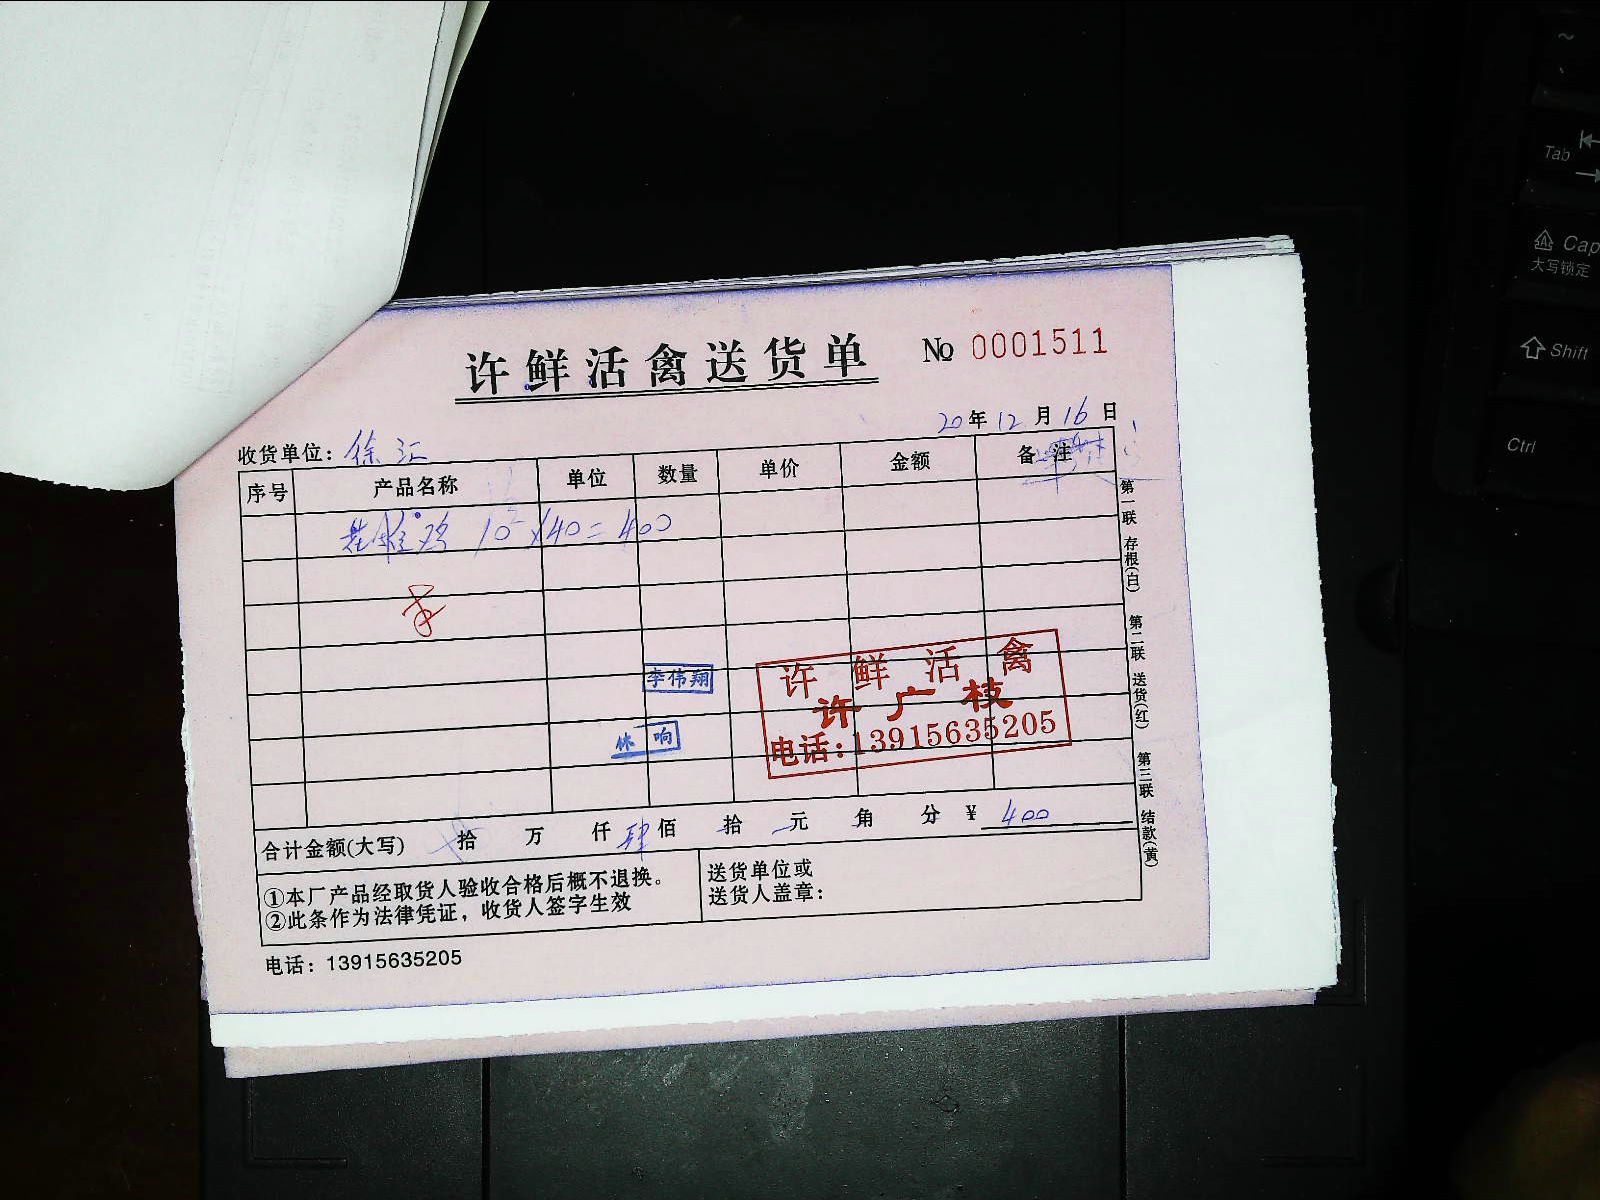 许鲜活禽送货单 № 0001511
20年12月16日
收货单位：徐汇
序号 产品名称 单位 数量 单价 金额 备注
鸡 10×40=400
李伟翔
响
许鲜活禽
许广枝
电话:13915635205
合计金额(大写) 拾 万 仟 肆佰 拾 元 角 分 ¥ 400
①本厂产品经取货人验收合格后概不退换。
②此条作为法律凭证，收货人签字生效
送货单位或
送货人盖章：
电话：13915635205
第一联 存根(白) 第二联 送货(红) 第三联 结款(黄)
~
Tab
Cap
大写锁定
Shift
Ctrl